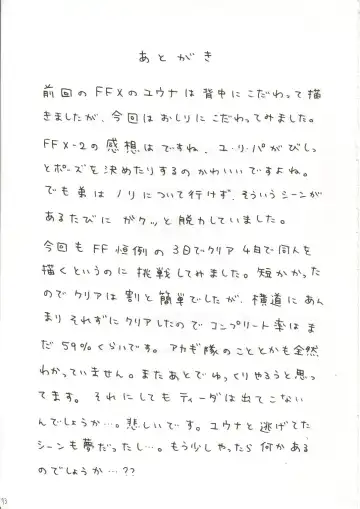 あとがき
前回のFFXのユウナは背中にこだわって描
きましたが、今回はおしりにこだわってみました。
FFX-2の感想はですね、ユ・リ・パがびしっ
とポーズを決めたりするのかわいいですよね。
でも弟はノリについて行けず、そういうシーンが
あるたびにガクッと脱力していました。
今回もFF恒例の3日でクリア4日で同人を
描くというのに挑戦してみました。短かかった
のでクリアは割と簡単でしたが、横道にあん
まりそれずにクリアしたのでコンプリート率はま
だ59%くらいです。アカギ隊のこととかも全然
わかっていません。またあとでゆっくりやろうと思っ
てます。それにしてもティーダは出てこない
んでしょうか…。悲しいです。ユウナと逃げてた
シーンも夢だったし…。もう少しやったら何かある
のでしょうか…??
93